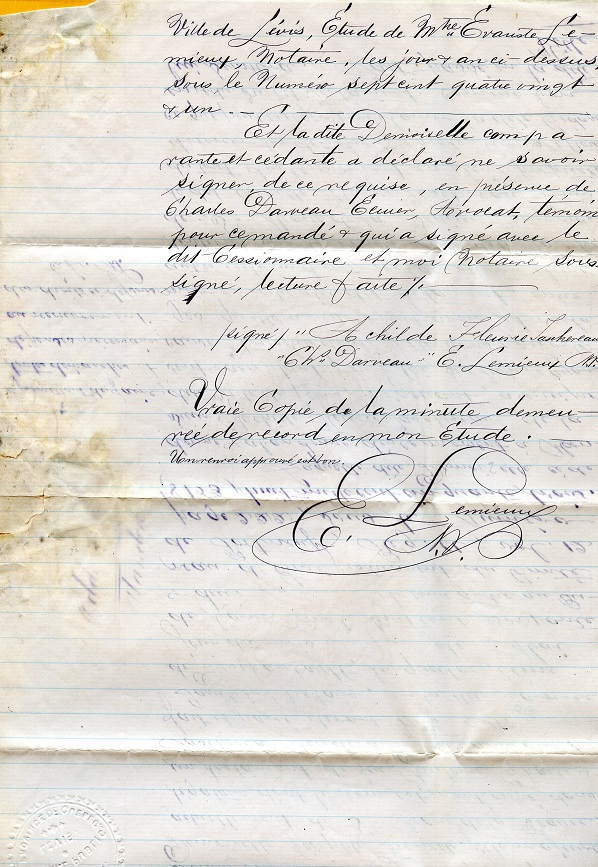 Ville de Lévis, Etude de Mtre Evariste Le-
mieux Notaire, les jour & an ci-dessus,
sous le Numéro sept cent quatre vingt
& un. —
Et la dite Demoiselle compa-
rante et cédante a déclaré ne savoir
signer, de ce requise, en présence de
Charles Darveau Ecuier, Avocat, témoin
pour ce mandé & qui a signé avec le
dit Cessionnaire et moi Notaire sous-
signé, lecture faite ./.
(signé) " Achilde Fleurie
"Chs Darveau" E. Lemieux N.P.
Vraie Copie de la minute demeu-
rée de record en mon Etude. —
Un renvoi approuvé est bon.
E. Lemieux
N.P.